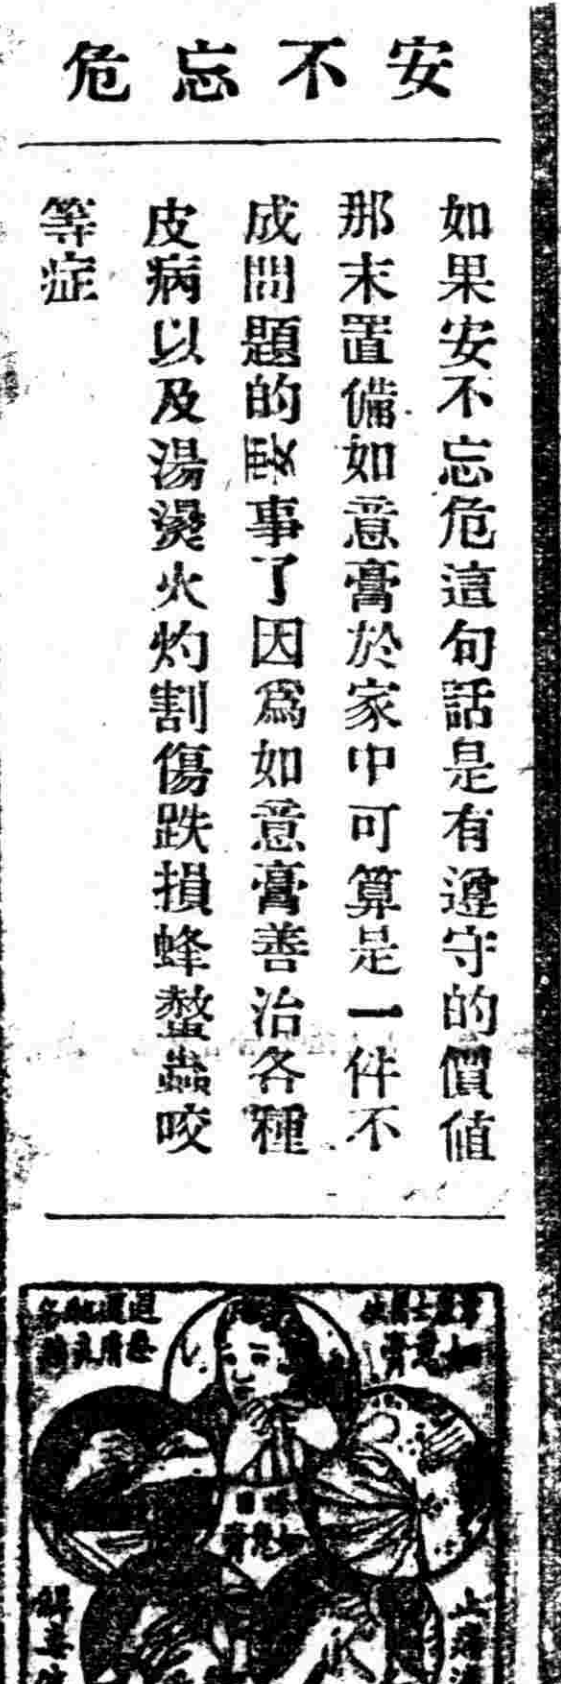 安不忘危
如果安不忘危這句話是有遵守的價値
那末置備如意膏於家中可算是一件不
成問題的要事了因爲如意膏善治各種
皮病以及湯燙火灼割傷跌損蜂螫蟲咬
等症